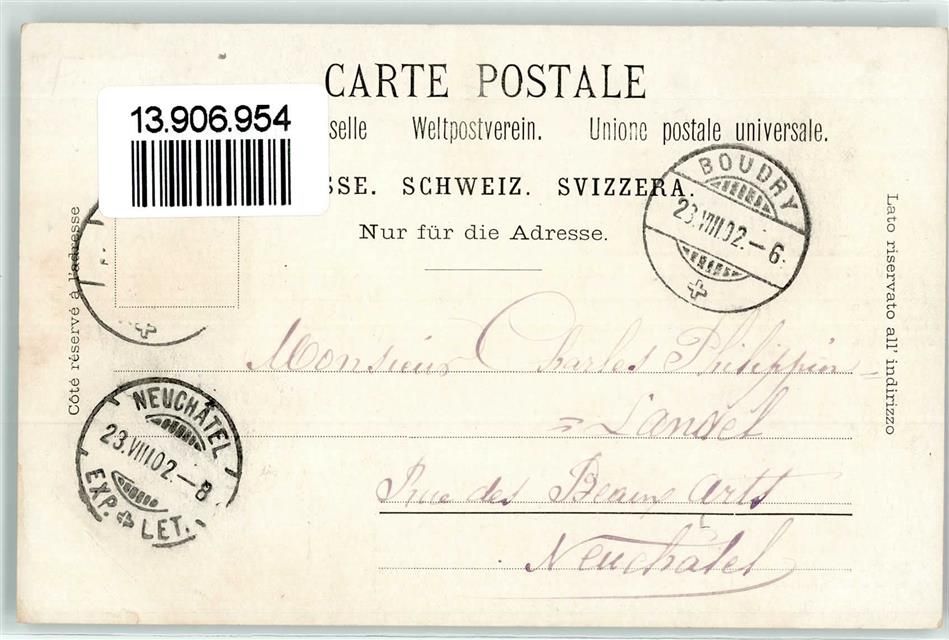 CARTE POSTALE
13.906.954
selle Weltpostverein. Unione postale universale.
SSE. SCHWEIZ. SVIZZERA.
Nur für die Adresse.
BOUDRY
23.VIII.02.–6.
Côté réservé à l'adresse
Lato riservato all' indirizzo
Monsieur Charles Philippin
=Landel
Rue des Beaux Arts
Neuchâtel
NEUCHÂTEL
23.VIII.02.–8
EXP. LET.